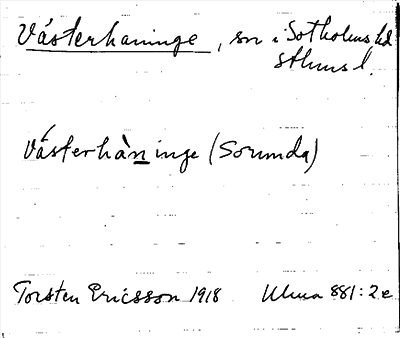 Västerhaninge, sn i Sotholms hd
Sthms l.
Vásterhàninge (Sorunda)
Torsten Ericsson 1918 Ulma 881:2e